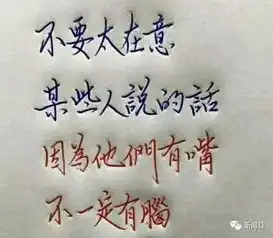 不要太在意
某些人說的話
因為他們有嘴
不一定有腦
新闻袋